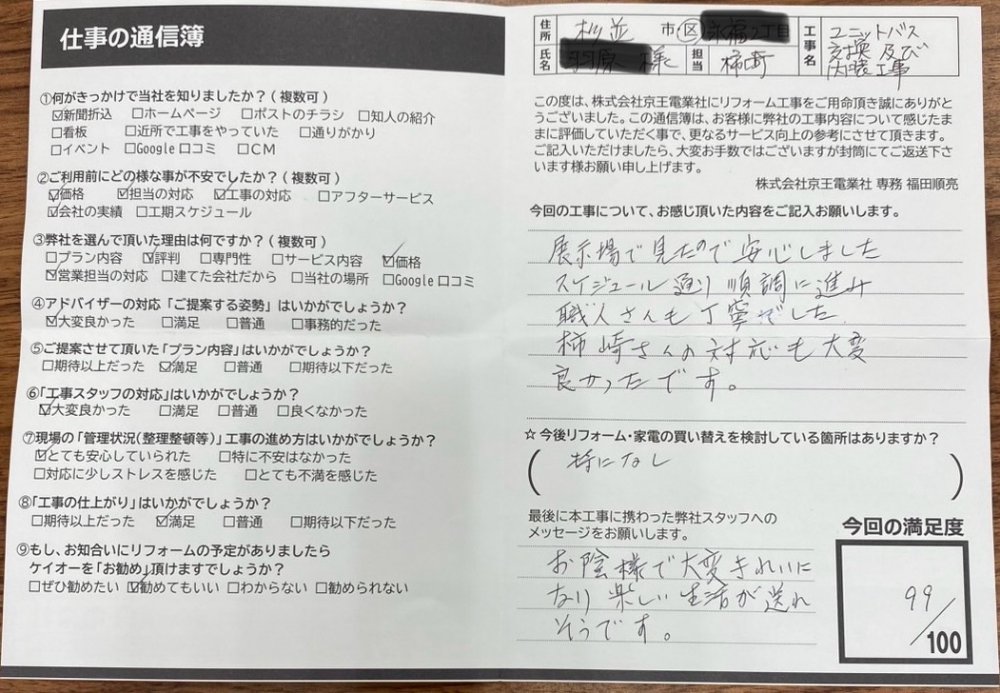 仕事の通信簿
①何がきっかけで当社を知りましたか？(複数可)
☑新聞折込 □ホームページ □ポストのチラシ □知人の紹介
□看板 □近所で工事をやっていた □通りがかり
□イベント □Google口コミ □CM
②ご利用前にどの様な事が不安でしたか？(複数可)
☑価格 ☑担当の対応 ☑工事の対応 □アフターサービス
☑会社の実績 □工期スケジュール
③弊社を選んで頂いた理由は何ですか？(複数可)
□プラン内容 ☑評判 □専門性 □サービス内容 ☑価格
☑営業担当の対応 □建てた会社だから □当社の場所 □Google口コミ
④アドバイザーの対応「ご提案する姿勢」はいかがでしょうか？
☑大変良かった □満足 □普通 □事務的だった
⑤ご提案させて頂いた「プラン内容」はいかがでしょうか？
□期待以上だった ☑満足 □普通 □期待以下だった
⑥「工事スタッフの対応」はいかがでしょうか？
☑大変良かった □満足 □普通 □良くなかった
⑦現場の「管理状況(整理整頓等)」工事の進め方はいかがでしょうか？
☑とても安心していられた □特に不安はなかった
□対応に少しストレスを感じた □とても不満を感じた
⑧「工事の仕上がり」はいかがでしょうか？
□期待以上だった ☑満足 □普通 □期待以下だった
⑨もし、お知合いにリフォームの予定がありましたら
ケイオーを「お勧め」頂けますでしょうか？
□ぜひ勧めたい ☑勧めてもいい □わからない □勧められない
住所 杉並 市・区
氏名 様 担当 柿崎
工事名 ユニットバス
交換及び
内装工事
この度は、株式会社京王電業社にリフォーム工事をご用命頂き誠にありがと
うございました。この通信簿は、お客様に弊社の工事内容について感じたま
まに評価していただく事で、更なるサービス向上の参考にさせて頂きます。
ご記入いただけましたら、大変お手数ではございますが封筒にてご返送下さ
います様お願い申し上げます。
株式会社京王電業社 専務 福田順亮
今回の工事について、お感じ頂いた内容をご記入お願いします。
展示場で見たので安心しました
スケジュール通り順調に進み
職人さんも丁寧でした。
柿崎さんの対応も大変
良かったです。
☆今後リフォーム・家電の買い替えを検討している箇所はありますか？
(特になし)
最後に本工事に携わった弊社スタッフへの
メッセージをお願いします。
お陰様で大変きれいに
なり楽しい生活が送れ
そうです。
今回の満足度
99/100